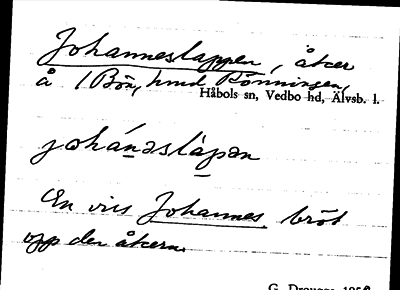 Johanneslappen, åker
å 1 Bön, hmd Rönningen,
Håbols sn, Vedbo hd, Älvsb. l.
johánəslàpən
En viss Johannes bröt
opp den åkern.